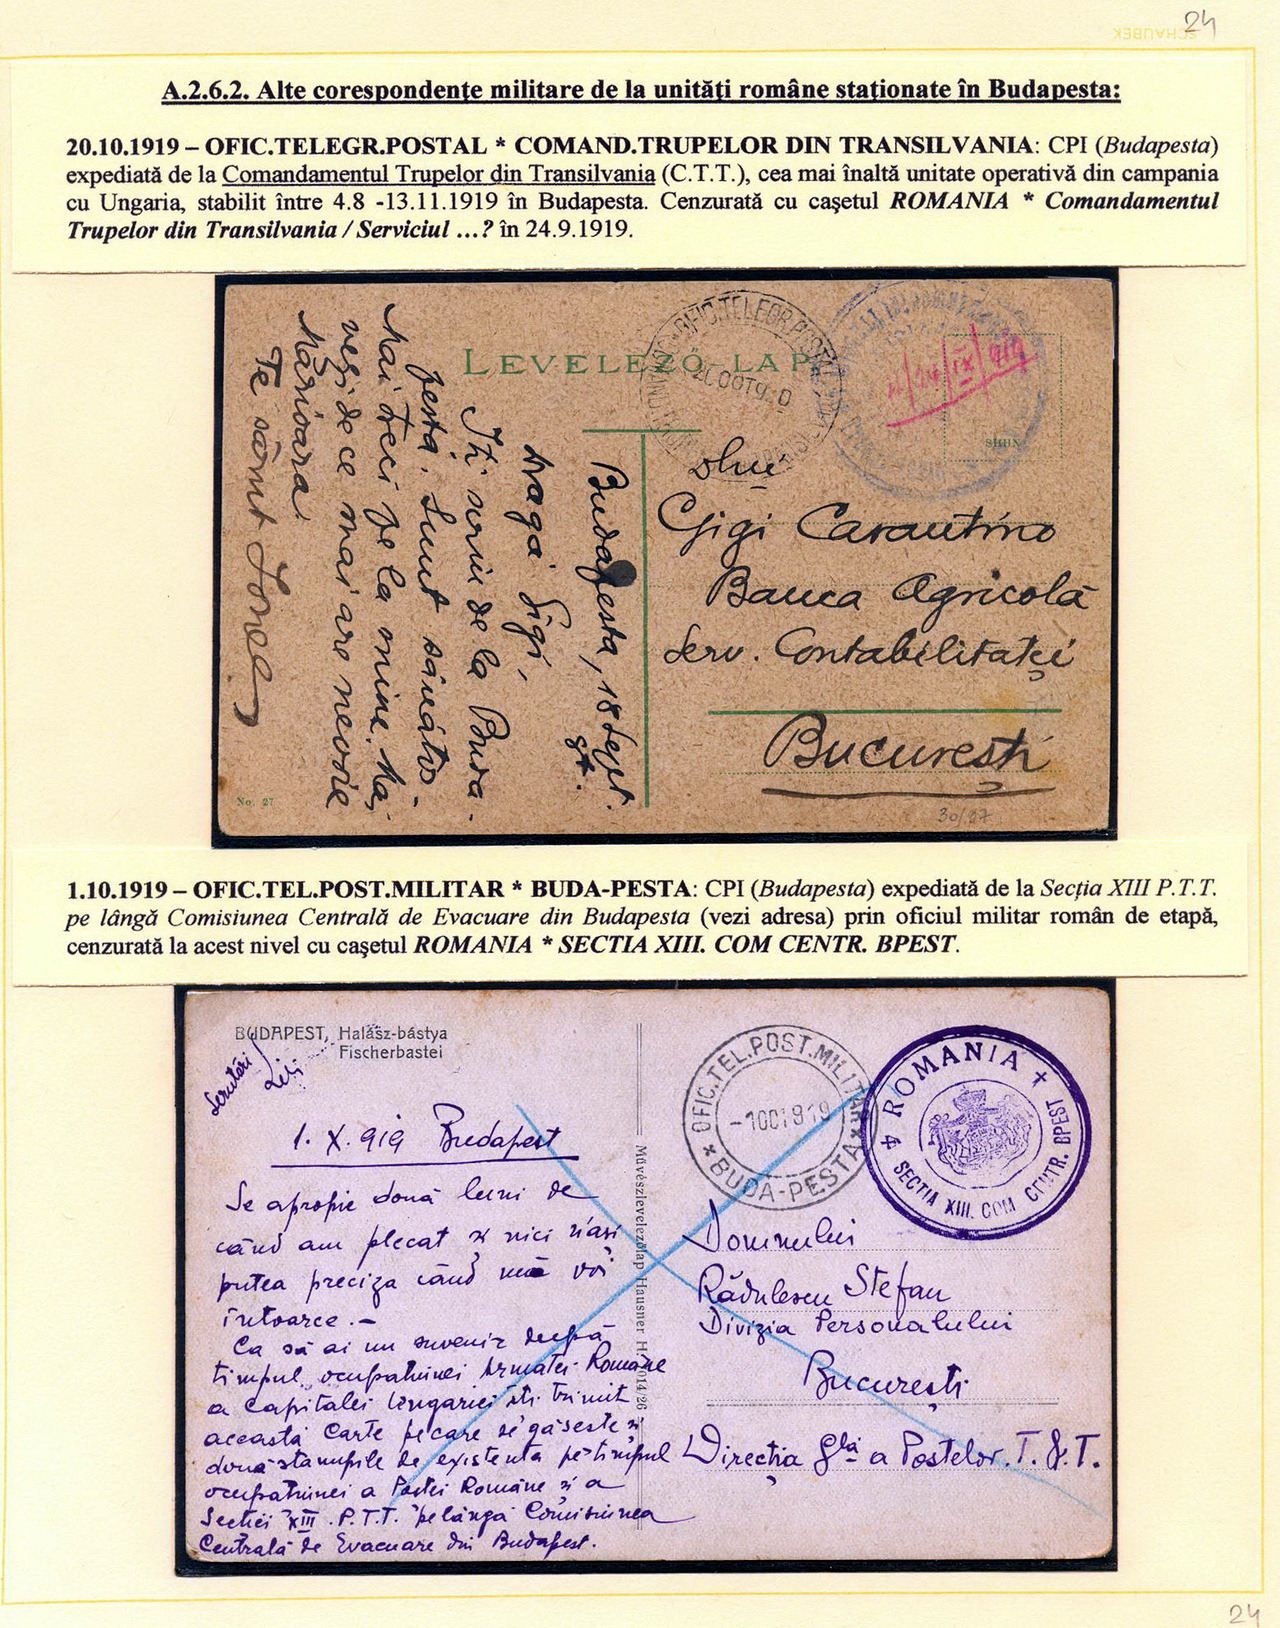 24
SCHAUBEK
A.2.6.2. Alte corespondențe militare de la unități române staționate în Budapesta:
20.10.1919 – OFIC.TELEGR.POSTAL * COMAND.TRUPELOR DIN TRANSILVANIA: CPI (Budapesta)
expediată de la Comandamentul Trupelor din Transilvania (C.T.T.), cea mai înaltă unitate operativă din campania
cu Ungaria, stabilit între 4.8 -13.11.1919 în Budapesta. Cenzurată cu cașetul ROMANIA * Comandamentul
Trupelor din Transilvania / Serviciul ...? în 24.9.1919.
LEVELEZŐ-LAP
OFIC.TELEGR.POSTAL
20 OCT 9
24/IX/919
Budapesta, 18 Sept.
st.
Dragă Gigi,
Iți scriu de la Buda-
pesta. Sunt sănătos.
Mai treci pe la mine. Mai
vezi de ce mai are nevoie
Mărioara.
Te sărut Ionel
No. 27
Dlui
Gigi Carantino
Banca Agricolă
Serv. Contabilităței
București
30/27
1.10.1919 – OFIC.TEL.POST.MILITAR * BUDA-PESTA: CPI (Budapesta) expediată de la Secția XIII P.T.T.
pe lângă Comisiunea Centrală de Evacuare din Budapesta (vezi adresa) prin oficiul militar român de etapă,
cenzurată la acest nivel cu cașetul ROMANIA * SECTIA XIII. COM CENTR. BPEST.
BUDAPEST, Halász-bástya
Fischerbastei
1. X. 919 Budapest
Se apropie două luni de
când am plecat și nici n'ași
putea preciza când mă voi
întoarce.-
Ca să ai un suvenir după
timpul ocupațiunei Armatei Române
a Capitalei Ungariei îți trimit
această carte pe care se găsește și
două stampile de existența pe timpul
ocupațiunei a Poștei Române și a
Secției XIII P.T.T. pe lângă Comisiunea
Centrală de Evacuare din Budapest.
Művészlevelezőlap Hausner H.
OFIC.TEL.POST.MILITAR
-1 OCT 919
* BUDA-PESTA *
ROMANIA
SECTIA XIII. COM CENTR. BPEST
Domnului
Rădulescu Stefan
Divizia Personalului
București
Direcția Glă a Poștelor. T. și T.
24